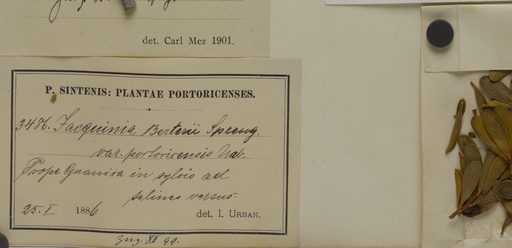 det. Carl Mez 1901.
P. SINTENIS: PLANTAE PORTORICENSES.
3486. Jacquinia Berterii Spreng.
var. portoricensis Urb.
Prope Guanica in sylvis ad
salinas versus
25. I 1886 det. I. URBAN.